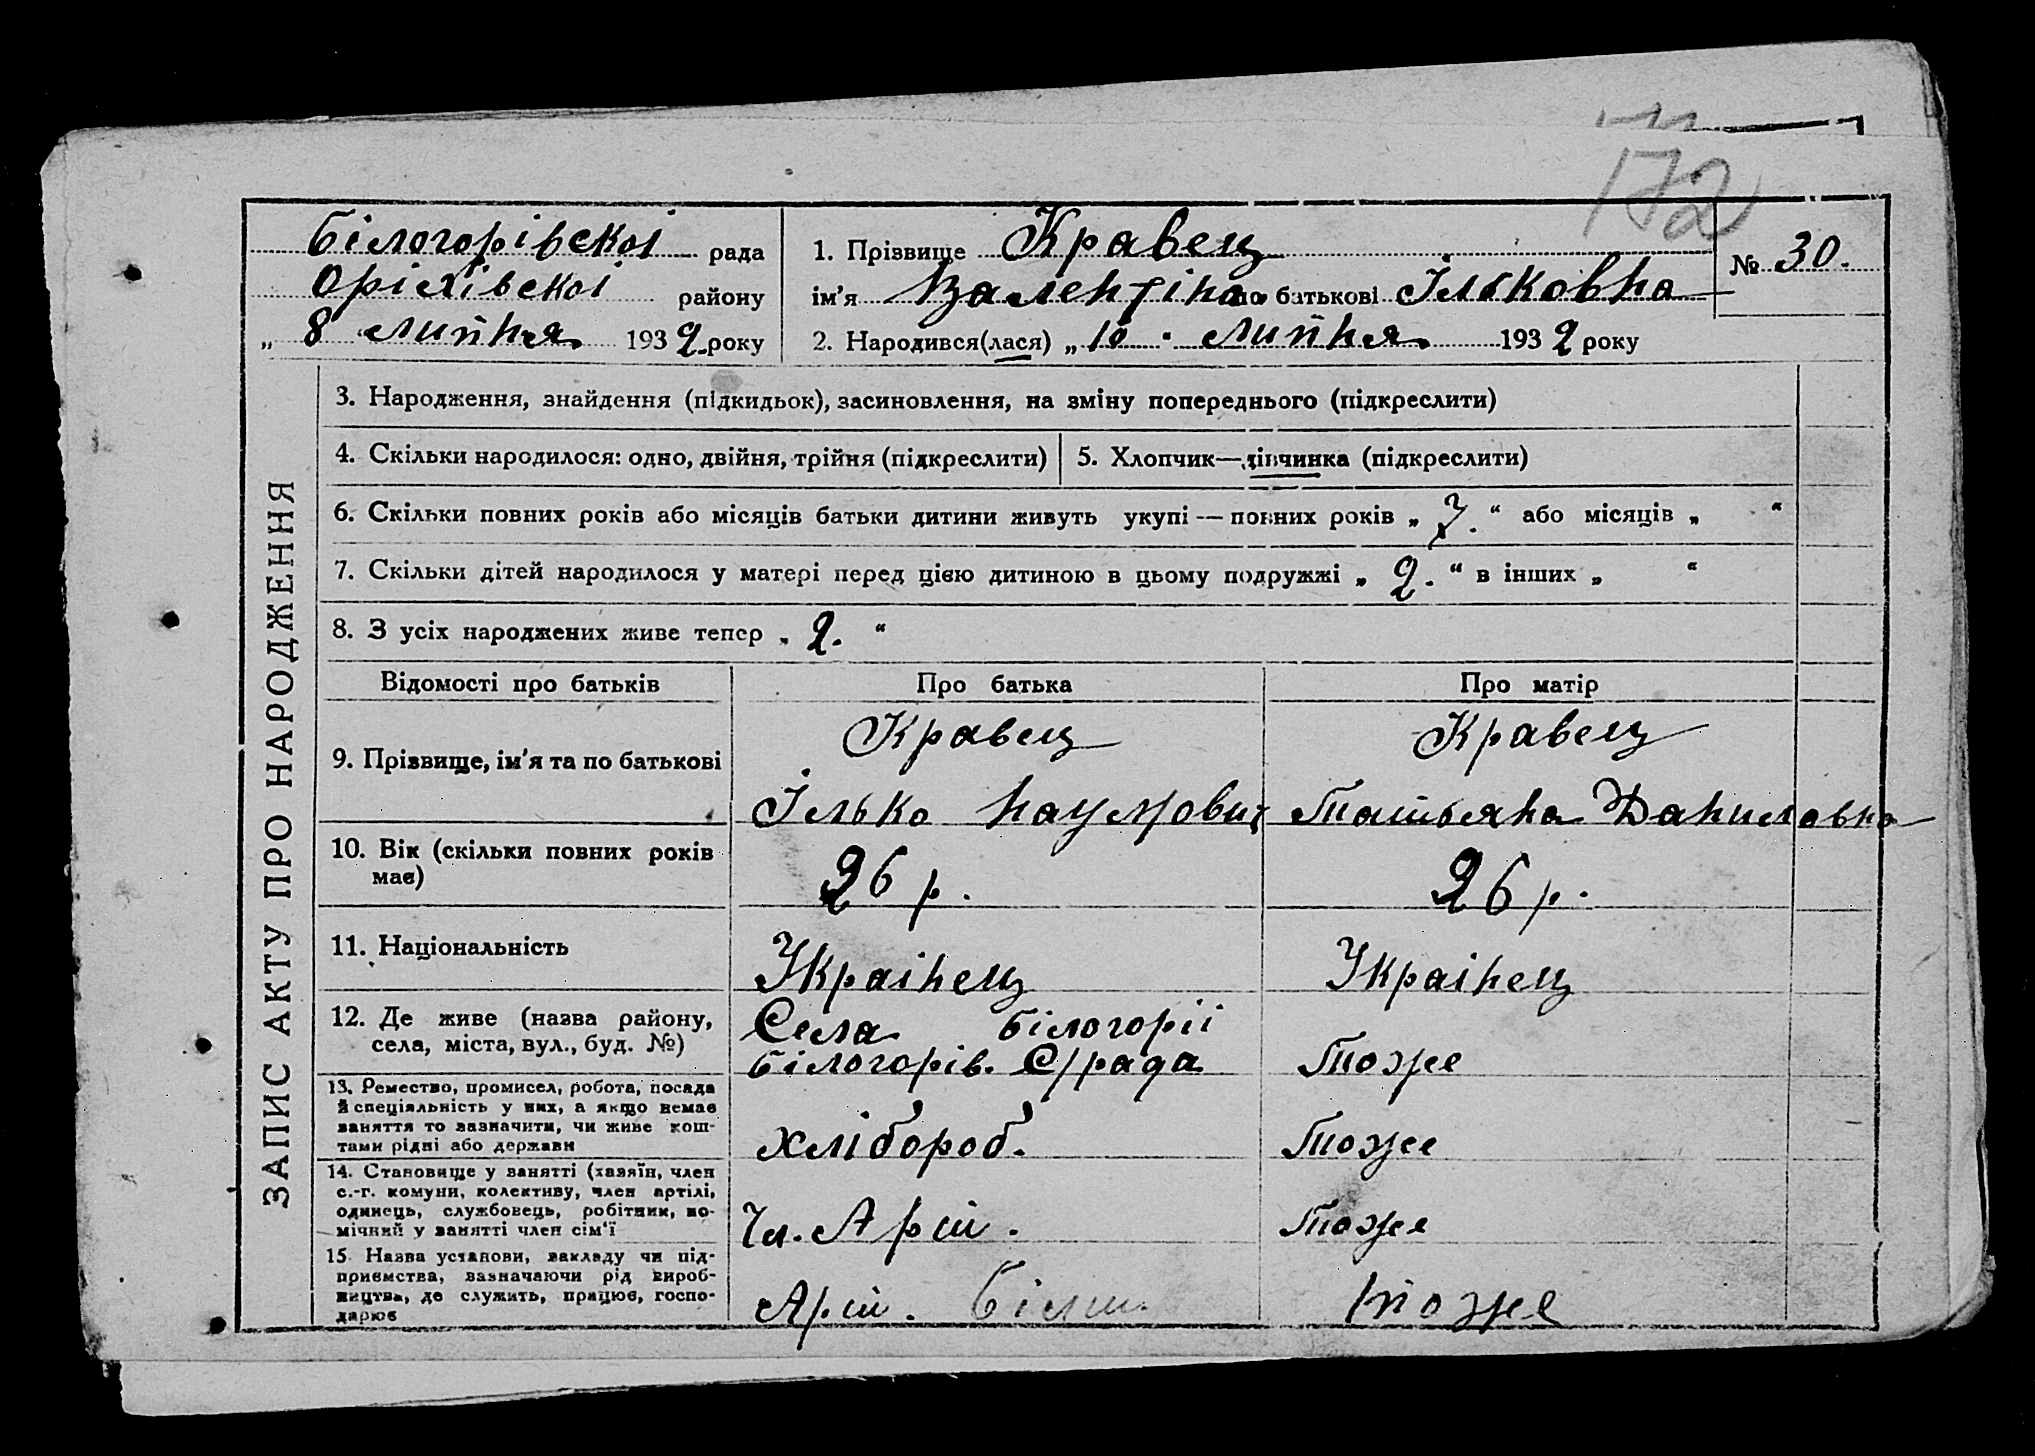 172
Білогорівскоі рада
Оріхівскоі району
„ 8 липня 1932 року
1. Прізвище Кравец
ім'я Валентіна по батькові Ільковна
№ 30.
2. Народився(лася) „ 10 . липня 1932 року
ЗАПИС АКТУ ПРО НАРОДЖЕННЯ
3. Народження, знайдення (підкидьок), засиновлення, на зміну попереднього (підкреслити)
4. Скільки народилося: одно, двійня, трійня (підкреслити)
5. Хлопчик—дівчинка (підкреслити)
6. Скільки повних років або місяців батьки дитини живуть укупі — повних років „ 7. “ або місяців „ “
7. Скільки дітей народилося у матері перед цією дитиною в цьому подружжі „ 2. “ в інших „ “
8. З усіх народжених живе тепер „ 2. “
Відомості про батьків Про батька Про матір
9. Прізвище, ім'я та по батькові
Кравец
Ілько Наумович
Кравец
Татьяна Даниловна
10. Вік (скільки повних років
має)
26 р.
26 р.
11. Національність
Украінец
Украінец
12. Де живе (назва району,
села, міста, вул., буд. №)
Села Білогоріі
Білогорів. С/рада
Тоже
13. Ремество, промисел, робота, посада
й спеціяльність у них, а якщо немає
заняття то зазначити, чи живе кош-
тами рідні або держави
хлібороб.
Тоже
14. Становище у занятті (хазяїн, член
с.-г. комуни, колективу, член артілі,
одинець, службовець, робітник, по-
мічний у занятті член сім'ї
Чл. Арт.
Тоже
15. Назва установи, закладу чи під-
приємства, зазначаючи рід вироб-
ництва, де служить, працює, госпо-
дарює
Арт.
тоже